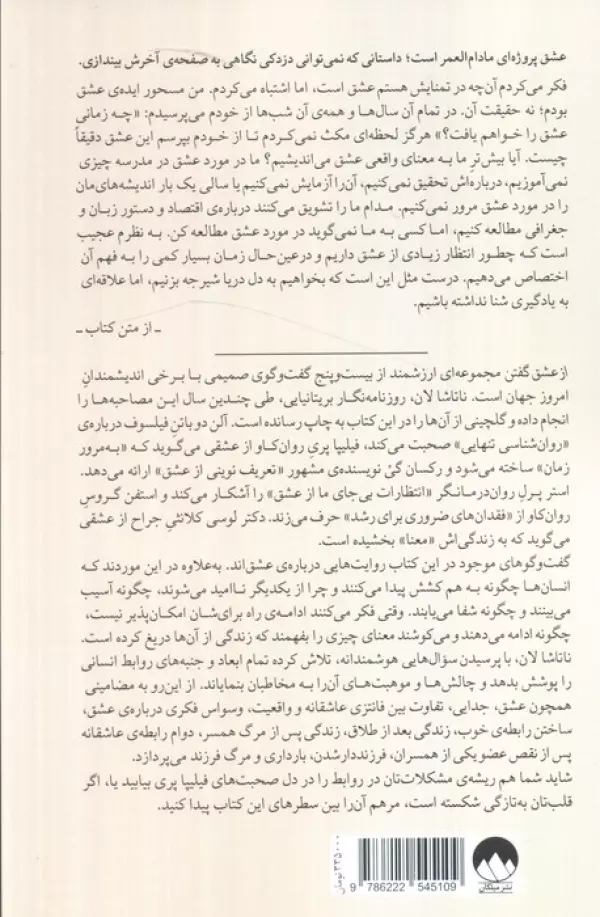 عشق پروژه‌ای مادام‌العمر است؛ داستانی که نمی‌توانی دزدکی نگاهی به صفحه‌ی آخرش بیندازی.
فکر می‌کردم آن‌چه در تمنایش هستم عشق است، اما اشتباه می‌کردم. من مسحور ایده‌ی عشق
بودم؛ نه حقیقت آن. در تمام آن سال‌ها و همه‌ی آن شب‌ها از خودم می‌پرسیدم: «چه زمانی
عشق را خواهم یافت؟» هرگز لحظه‌ای مکث نمی‌کردم تا از خودم بپرسم این عشق دقیقاً
چیست. آیا بیش‌ترِ ما به معنای واقعی عشق می‌اندیشیم؟ ما در مورد عشق در مدرسه چیزی
نمی‌آموزیم، درباره‌اش تحقیق نمی‌کنیم، آن‌را آزمایش نمی‌کنیم یا سالی یک بار اندیشه‌های‌مان
را در مورد عشق مرور نمی‌کنیم. مدام ما را تشویق می‌کنند درباره‌ی اقتصاد و دستور زبان و
جغرافی مطالعه کنیم، اما کسی به ما نمی‌گوید در مورد عشق مطالعه کن. به نظرم عجیب
است که چطور انتظار زیادی از عشق داریم و درعین‌حال زمان بسیار کمی را به فهم آن
اختصاص می‌دهیم. درست مثل این است که بخواهیم به دل دریا شیرجه بزنیم، اما علاقه‌ای
به یادگیری شنا نداشته باشیم.
ـ از متن کتاب ـ
از عشق گفتن مجموعه‌ای ارزشمند از بیست‌وپنج گفت‌وگوی صمیمی با برخی اندیشمندانِ
امروز جهان است. ناتاشا لان، روزنامه‌نگار بریتانیایی، طی چندین سال این مصاحبه‌ها را
انجام داده و گلچینی از آن‌ها را در این کتاب به چاپ رسانده است. آلن دو باتنِ فیلسوف درباره‌ی
«روان‌شناسی تنهایی» صحبت می‌کند، فیلیپا پریِ روان‌کاو از عشقی می‌گوید که «به‌مرور
زمان» ساخته می‌شود و رکسان گیْ نویسنده‌ی مشهور «تعریف نوینی از عشق» ارائه می‌دهد.
استر پرلِ روان‌درمانگر «انتظارات بی‌جای ما از عشق» را آشکار می‌کند و استفن گروسِ
روان‌کاو از «فقدان‌های ضروری برای رشد» حرف می‌زند. دکتر لوسی کلانثیِ جراح از عشقی
می‌گوید که به زندگی‌اش «معنا» بخشیده است.
گفت‌وگوهای موجود در این کتاب روایت‌هایی درباره‌ی عشق‌اند. به‌علاوه در این موردند که
انسان‌ها چگونه به هم کشش پیدا می‌کنند و چرا از یکدیگر ناامید می‌شوند، چگونه آسیب
می‌بینند و چگونه شفا می‌یابند. وقتی فکر می‌کنند ادامه‌ی راه برای‌شان امکان‌پذیر نیست،
چگونه ادامه می‌دهند و می‌کوشند معنای چیزی را بفهمند که زندگی از آن‌ها دریغ کرده است.
ناتاشا لان، با پرسیدن سؤال‌هایی هوشمندانه، تلاش کرده تمام ابعاد و جنبه‌های روابط انسانی
را پوشش بدهد و چالش‌ها و موهبت‌های آن‌را به مخاطبان بنمایاند. از این‌رو به مضامینی
همچون عشق، جدایی، تفاوت بین فانتزی عاشقانه و واقعیت، وسواس فکری درباره‌ی عشق،
ساختن رابطه‌ی خوب، زندگی بعد از طلاق، زندگی پس از مرگ همسر، دوام رابطه‌ی عاشقانه
پس از نقص عضو یکی از همسران، فرزنددارشدن، بارداری و مرگ فرزند می‌پردازد.
شاید شما هم ریشه‌ی مشکلات‌تان در روابط را در دل صحبت‌های فیلیپا پری بیابید یا، اگر
قلب‌تان به‌تازگی شکسته است، مرهم آن‌را بین سطرهای این کتاب پیدا کنید.
۳۳۵۰۰۰ تومان
9 786222 545109
نشر میلکان